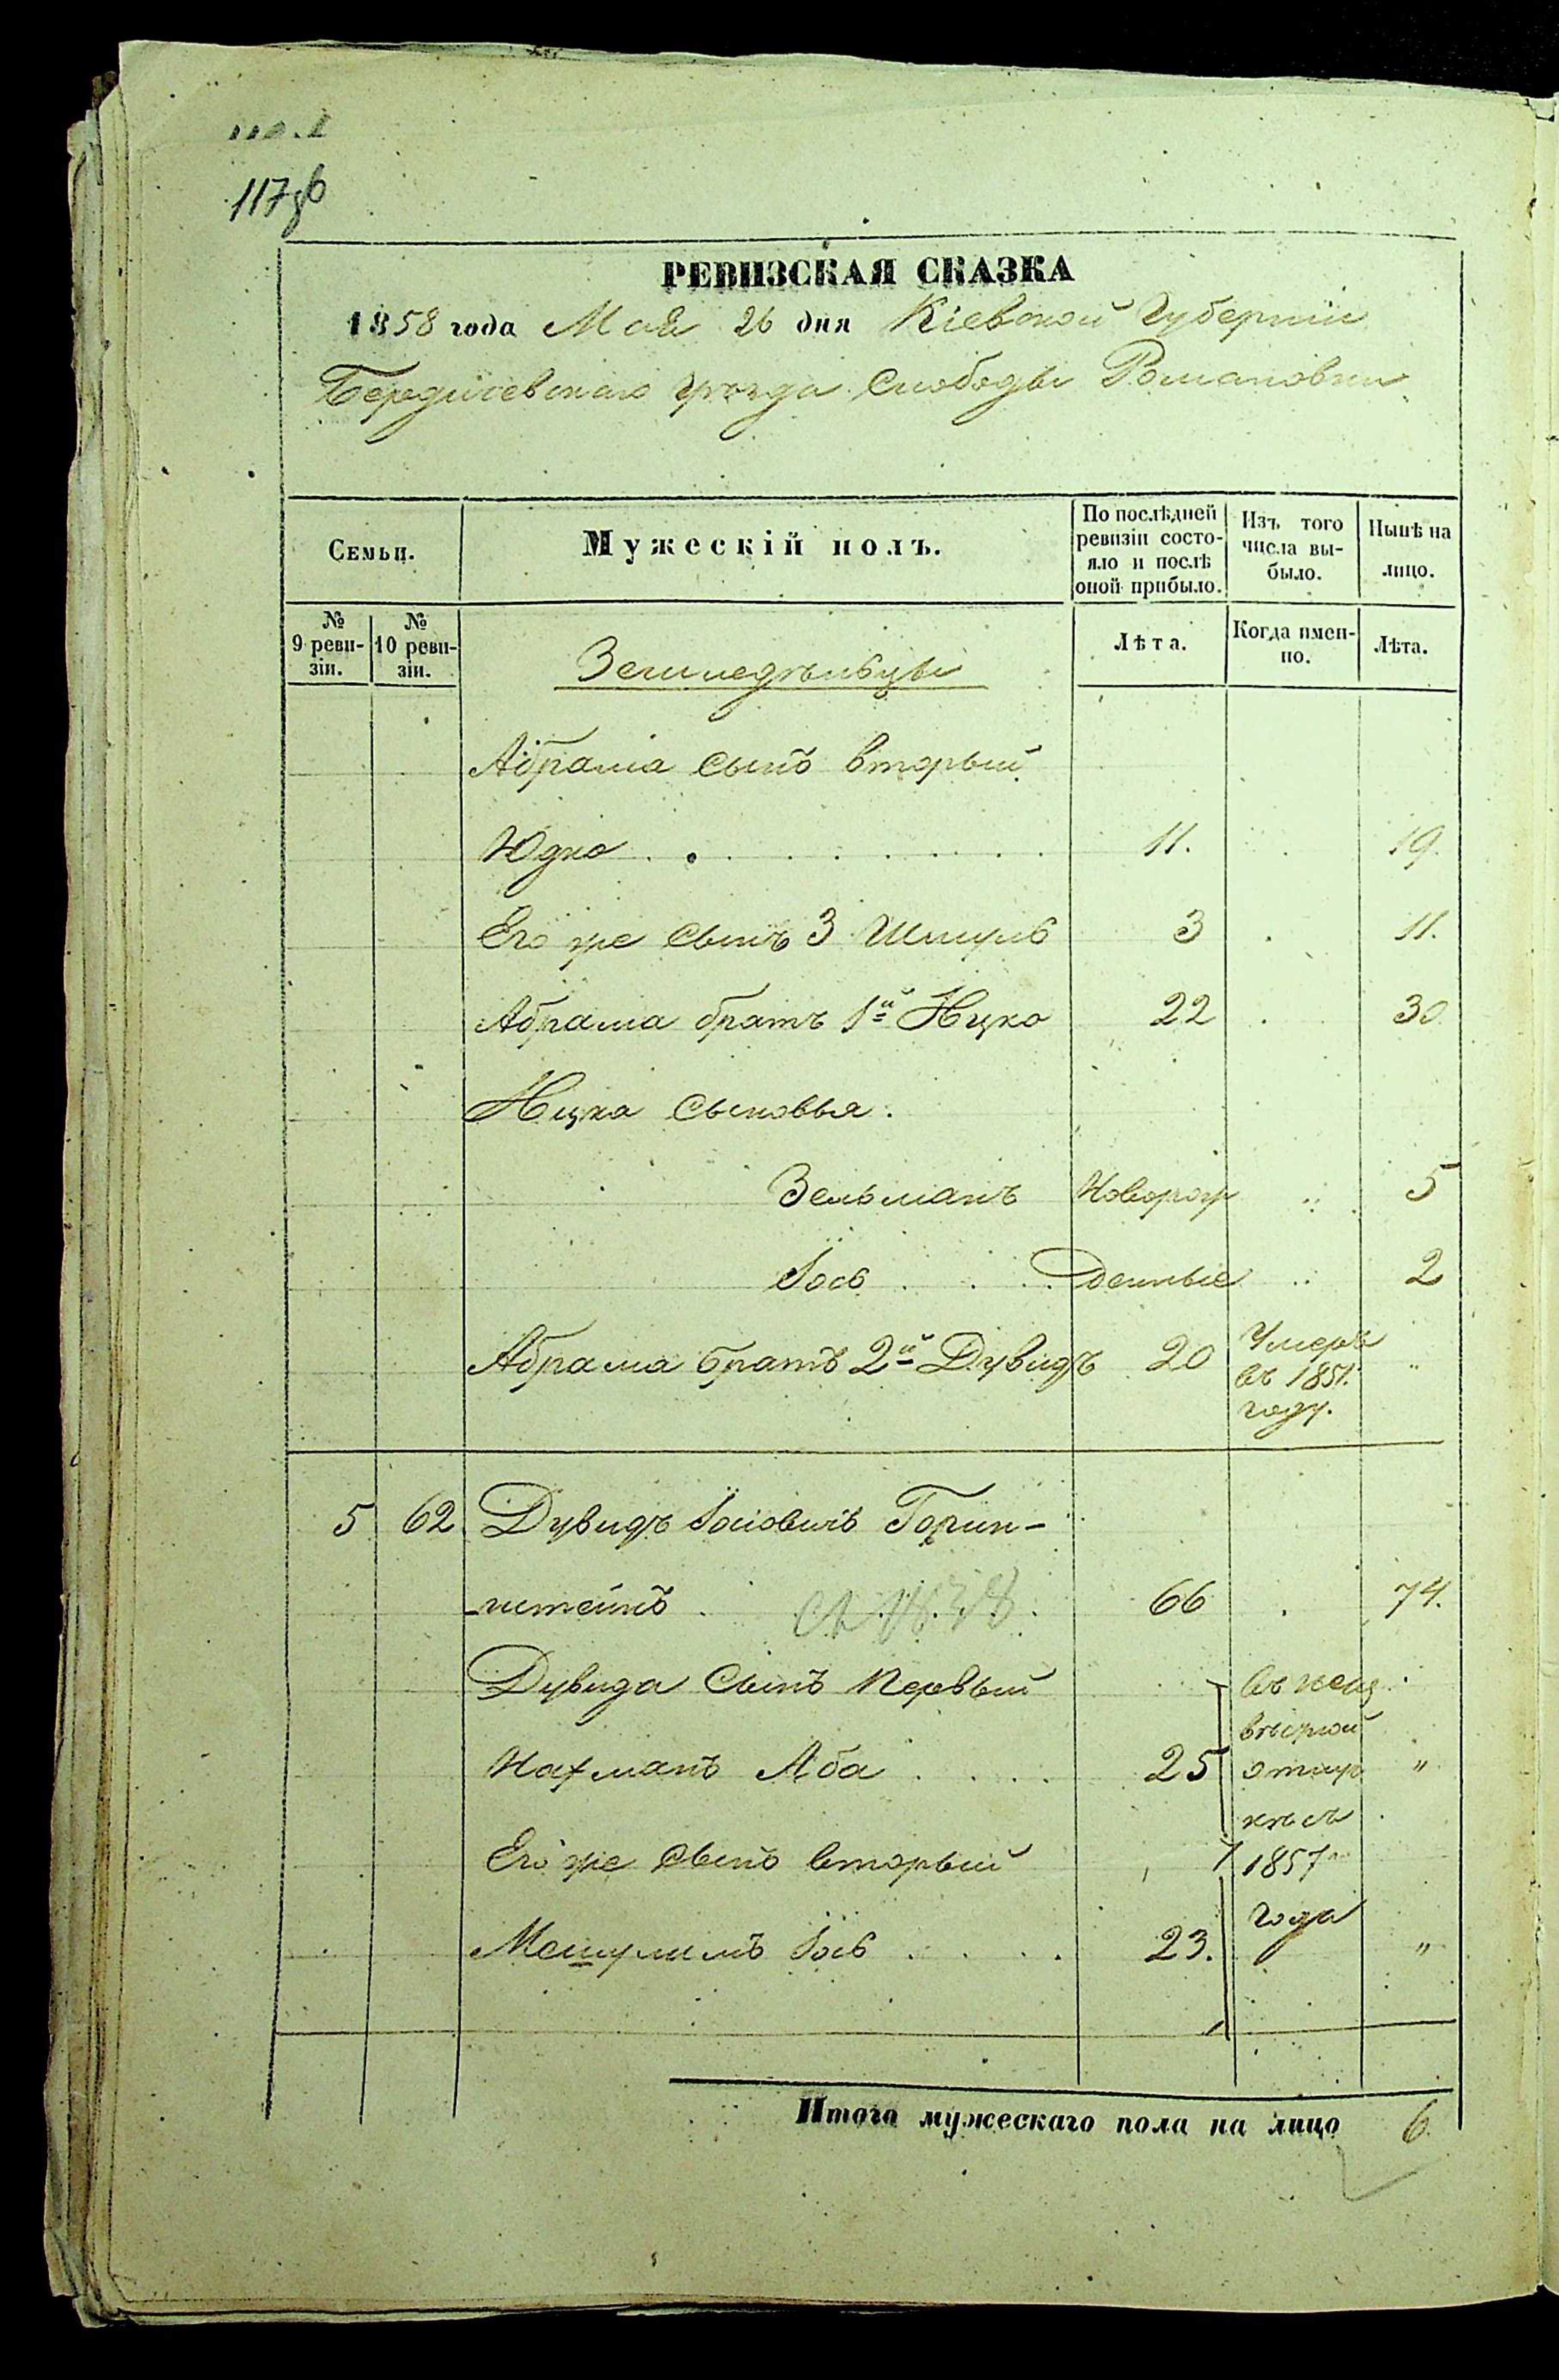 117об
РЕВИЗСКАЯ СКАЗКА
1858 года Мая 26 дня Кіевской Губерніи
Бердичевскаго уѣзда Слободы Романовки
Семьи.
Мужескій полъ.
По послѣдней ревизіи состо-
яло и послѣ оной прибыло.
Изъ того числа вы-
было.
Нынѣ на лицо.
№ 9 реви-
зіи.
№ 10 реви-
зіи.
Земледѣльцы
Лѣта.
Когда имен-
но.
Лѣта.
Абрама сынъ вторый
Юдко 11. 19.
Его же сынъ 3 Шмуль 3 11.
Абрама братъ 1й Ицко 22 30
Ицка сыновья.
Зельманъ Новорож 5
Іось денные 2
Абрама братъ 2й Дувидъ 20 Умеръ " 
въ 1851.
году.
5 62 Дувидъ Іосіовичъ Горин-
штейнъ 66 74.
Дувида сынъ первый въ неиз
вѣстной
Нахманъ Аба 25 отлуч "
кѣ съ
Его же сынъ вторый 1857
года
Мешулимъ Іось 23. "
Итого мужескаго пола на лицо 6.